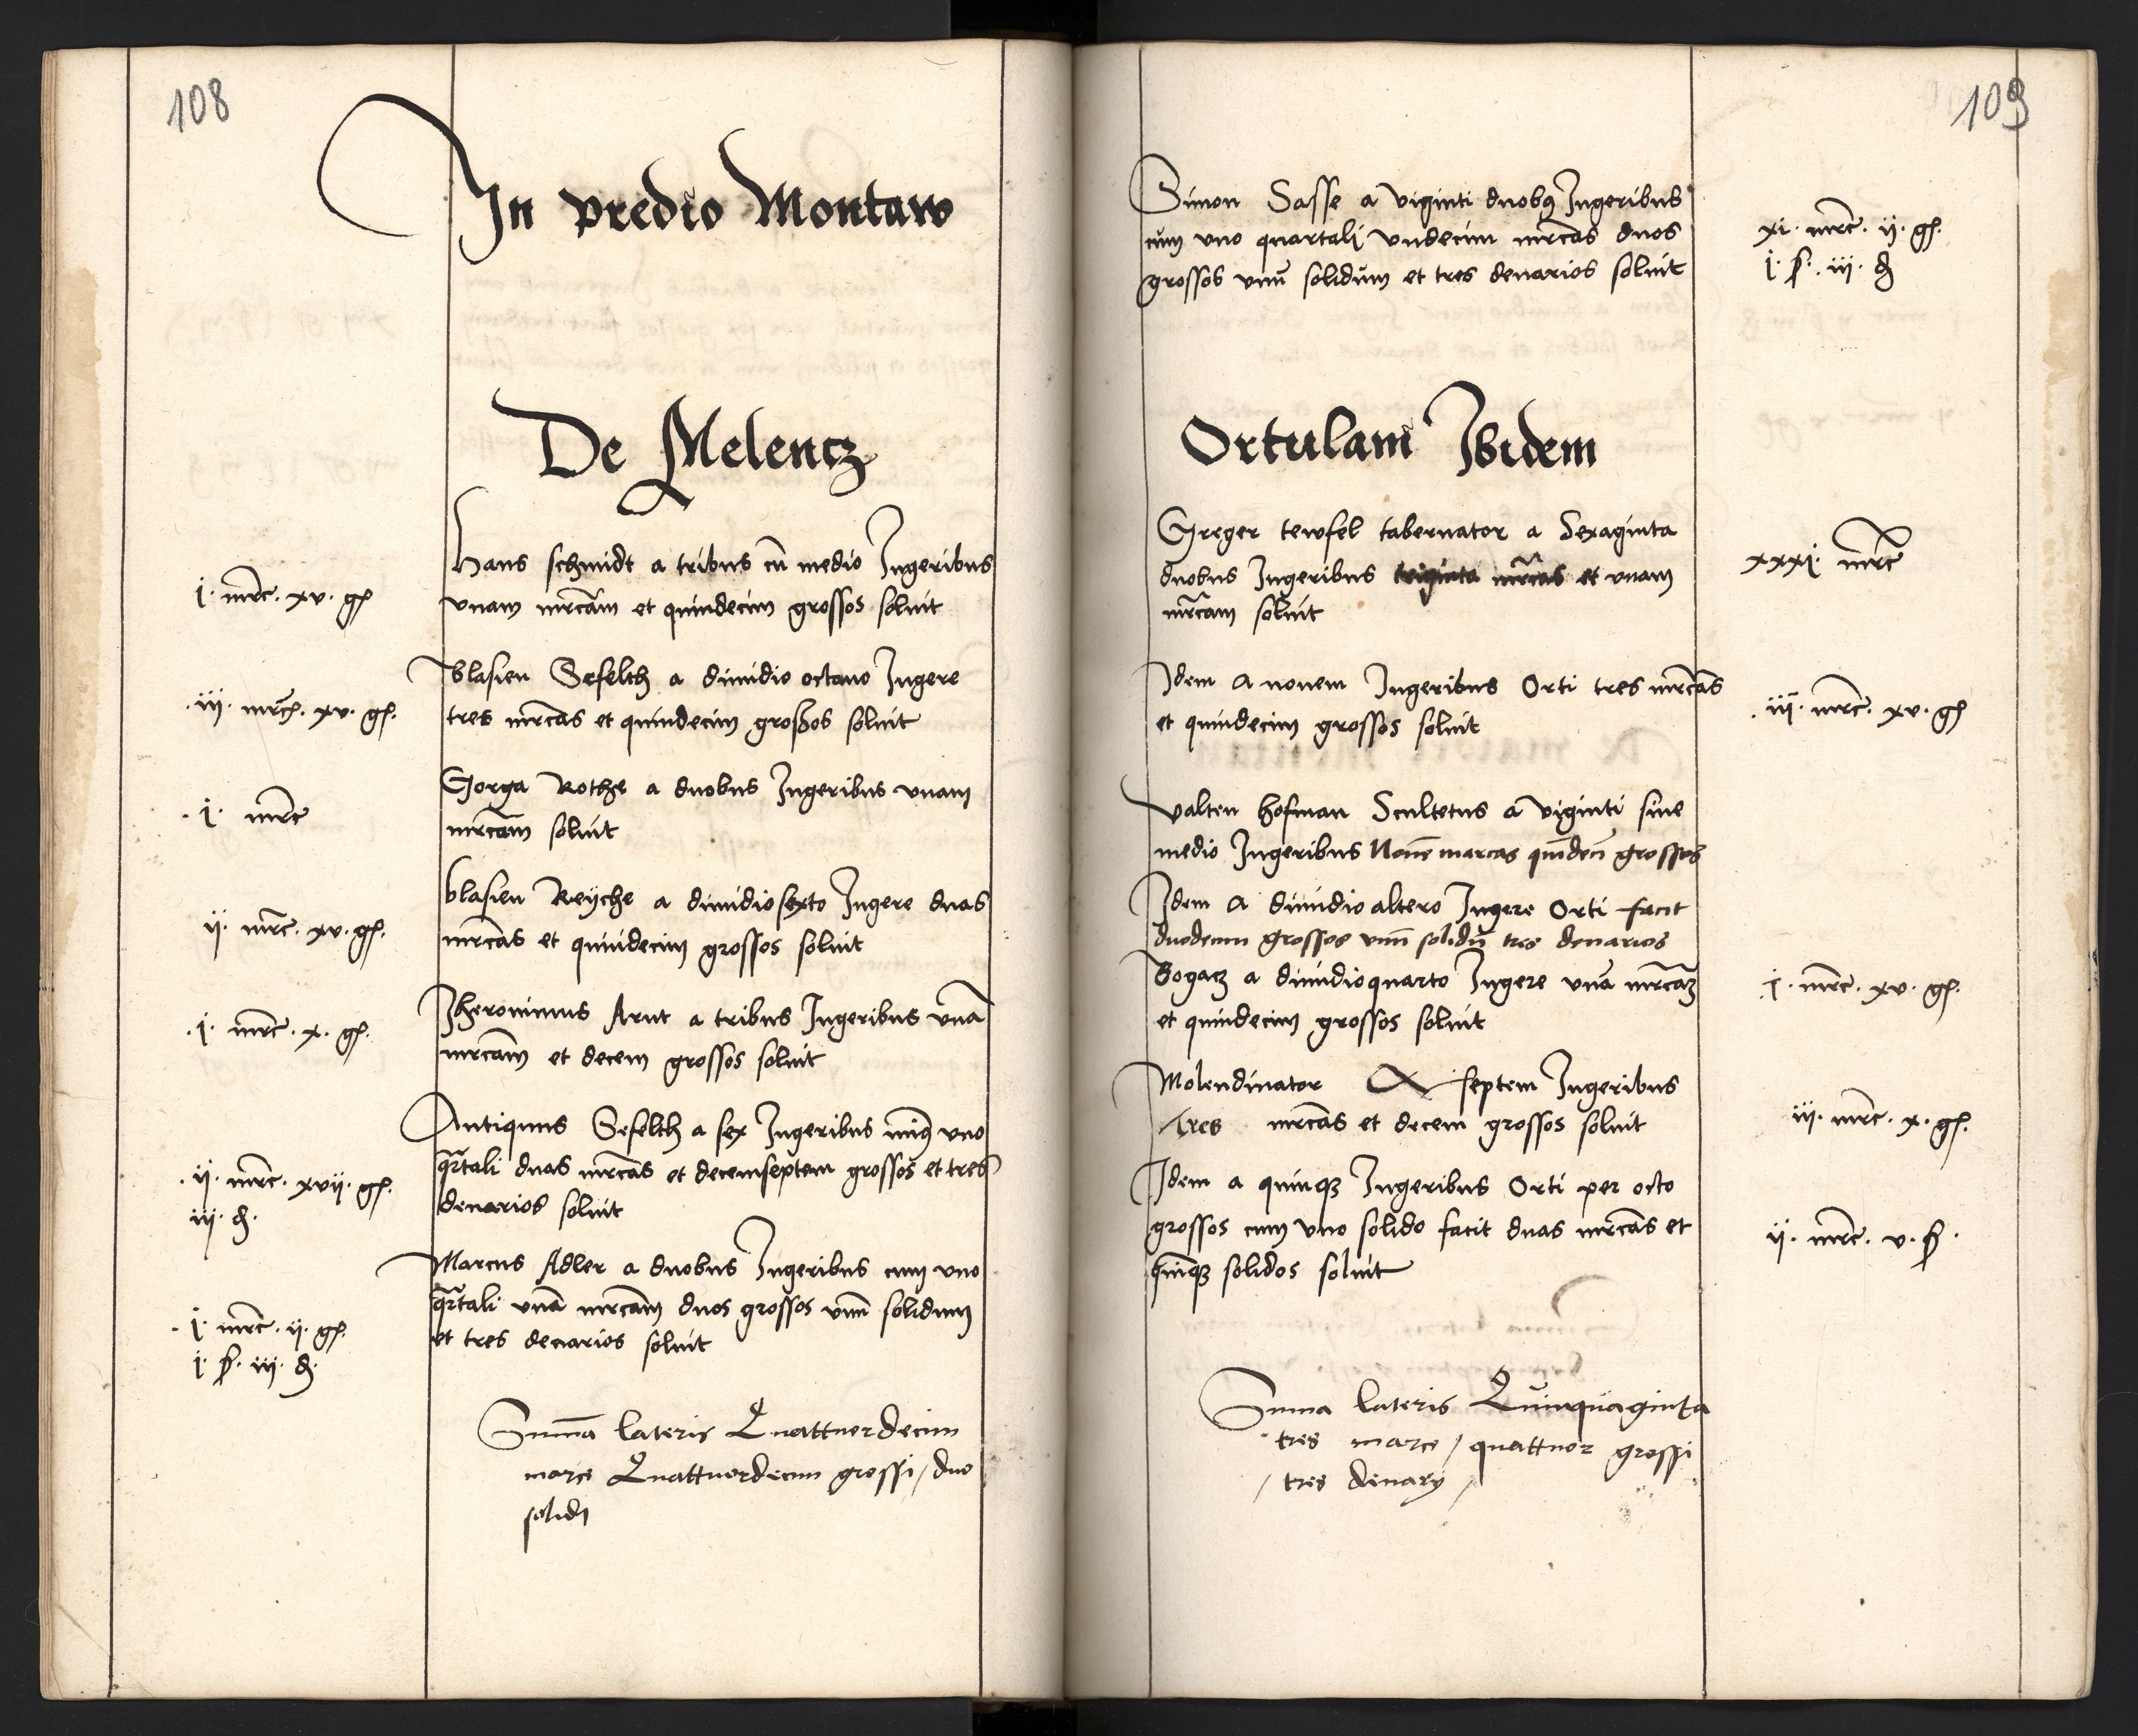 108
In predio Montaw
De Melencz
Hans schmidt a tribus cū medio Jugeribus
vnam mrcam et quindecim grossos soluit
i. mrc. xv. gſ
Blasien Sefelth a dimidio octauo Jugere
tres mrcas et quindecim großos soluit
.iii. mrc. xv. gſ.
Gorga Rothe a duobus Jugeribus vnam
mrcam soluit
.i. mrc
blasien Reyche a dimidio sexto Jugere duas
mrcas et quindecim grossos soluit
ij. mrc. xv. gſ.
Jheronimus Arnt a tribus Jugeribus vnā
mrcam et decem grossos soluit
.i. mrc. x. gſ.
Antiquus Sefelth a sex Jugeribus vno
qrtali duas mrcas et decemseptem grossos et tres
denarios soluit
.ij. mrc. xvii. gſ.
iij. ₰.
Marcus Adler a duobus Jugeribus cum vno
qrtali vnā mrcam duos grossos vnū solidum
et tres denarios soluit
.i. mrc. ij. gſ.
i. ſ. iij. ₰.
Summa lateris Quattuordecim
marce Quattuordecim grossi / duo
solidi
109
Simon Sasse a viginti duobꝫ Jugeribus
cum vno quartali vndecim mrcas duos
grossos vnū solidum et tres denarios soluit
xi. mrc. ij. gſ.
i. ſ. iij. ₰
Ortulani Ibidem
Greger tewfel tabernator a Sexaginta
duobus Jugeribus triginta mrcas et vnam
mrcam soluit
xxxi. mrc
Idem a nouem Jugeribus Orti tres mrcas
et quindecim grossos soluit
.iii. mrc. xv. gſ
Valten hofman Scultetus a viginti sine
medio Jugeribus Nouē marcas quīdecī grossos
Idem a dimidio altero Jugere Orti facit
duodecim grossos vnū solidū tres denarios
Bogacz a dimidioquarto Jugere vnā mrcam
et quindecim grossos soluit
.i. mrc. xv. gſ.
Molendinator A septem Jugeribus
Tres mrcas et decem grossos soluit
iij. mrc. x. gſ.
Idem a quinqꝫ Jugeribus Orti per octo
grossos cum vno solido facit duas mrcas et
quinqꝫ solidos soluit
ij. mrc. v. ſ.
Suma lateris Quinquaginta
tres marce / quattuor grossi
/ tres denary /